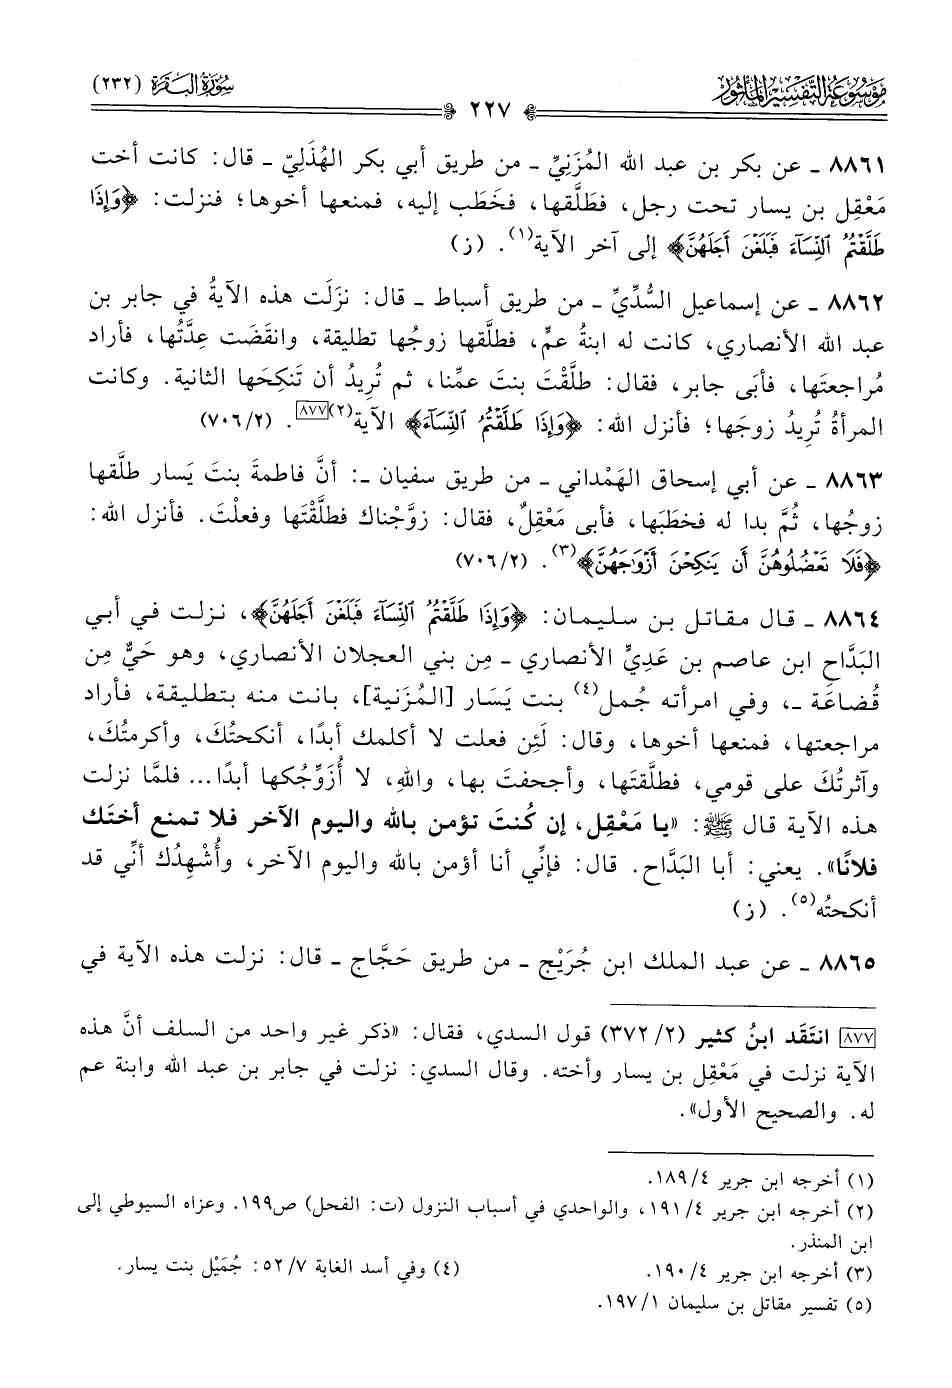 مَوْسُوعَة التَّفْسِير المَأْثُور
سُورَةُ البَقَرَة (٢٣٢)
٢٢٧
٨٨٦١ ـ عن بكر بن عبد الله المُزَنِيِّ ـ من طريق أبي بكر الهُذَلِيّ ـ قال: كانت أخت
مَعْقِل بن يسار تحت رجل، فطَلَّقها، فخَطَب إليه، فمنعها أخوها؛ فنزلت: ﴿وَإِذَا
طَلَّقْتُمُ ٱلنِّسَآءَ فَبَلَغْنَ أَجَلَهُنَّ﴾ إلى آخر الآية(١). (ز)
٨٨٦٢ ـ عن إسماعيل السُّدِّيِّ ـ من طريق أسباط ـ قال: نزَلَت هذه الآيةُ في جابر بن
عبد الله الأنصاري، كانت له ابنةُ عمٍّ، فطلَّقها زوجُها تطليقة، وانقَضَت عِدَّتُها، فأراد
مُراجعتَها، فأبَى جابر، فقال: طلَّقْتَ بنت عمِّنا، ثم تُرِيدُ أن تَنكِحَها الثانية. وكانت
المرأةُ تُرِيدُ زوجَها؛ فأنزل الله: ﴿وَإِذَا طَلَّقْتُمُ ٱلنِّسَآءَ﴾ الآية(٢)[٨٧٧]. (٧٠٦/٢)
٨٨٦٣ ـ عن أبي إسحاق الهَمْداني ـ من طريق سفيان ـ: أنَّ فاطمةَ بنتَ يَسار طلَّقها
زوجُها، ثُمَّ بدا له فخطَبَها، فأبى مَعْقِلٌ، فقال: زوَّجْناك فطلَّقْتَها وفعلْتَ. فأنزل الله:
﴿فَلَا تَعْضُلُوهُنَّ أَن يَنكِحْنَ أَزْوَٰجَهُنَّ﴾(٣). (٧٠٦/٢)
٨٨٦٤ ـ قال مقاتل بن سليمان: ﴿وَإِذَا طَلَّقْتُمُ ٱلنِّسَآءَ فَبَلَغْنَ أَجَلَهُنَّ﴾، نزلت في أبي
البَدَّاح ابن عاصم بن عَدِيٍّ الأنصاري ـ مِن بني العجلان الأنصاري، وهو حَيٌّ مِن
قُضاعَة ـ، وفي امرأته جُمل(٤) بنت يَسَار [المُزَنية]، بانت منه بتطليقة، فأراد
مراجعتها، فمنعها أخوها، وقال: لَئِن فعلت لا أكلمك أبدًا، أنكحتُكَ، وأكرمتُكَ،
وآثرتُكَ على قومي، فطلَّقتَها، وأجحفتَ بها، واللهِ، لا أُزَوِّجُكها أبدًا... فلمَّا نزلت
هذه الآية قال ﷺ: «يا مَعْقِل، إن كُنتَ تؤمن بالله واليوم الآخر فلا تمنع أختَك
فلانًا». يعني: أبا البَدَّاح. قال: فإنِّي أنا أؤمن بالله واليوم الآخر، وأُشْهِدُك أنِّي قد
أنكحتُه(٥). (ز)
٨٨٦٥ ـ عن عبد الملك ابن جُرَيْج ـ من طريق حَجَّاج ـ قال: نزلت هذه الآية في
[٨٧٧] انتَقَد ابنُ كثير (٣٧٢/٢) قول السدي، فقال: «ذكر غير واحد من السلف أنَّ هذه
الآية نزلت في مَعْقِل بن يسار وأخته. وقال السدي: نزلت في جابر بن عبد الله وابنة عم
له. والصحيح الأول».
(١) أخرجه ابن جرير ٤/١٨٩.
(٢) أخرجه ابن جرير ٤/١٩١، والواحدي في أسباب النزول (ت: الفحل) ص١٩٩. وعزاه السيوطي إلى
ابن المنذر.
(٣) أخرجه ابن جرير ٤/١٩٠.
(٤) وفي أسد الغابة ٧/٥٢: جُمَيْل بنت يسار.
(٥) تفسير مقاتل بن سليمان ١/١٩٧.